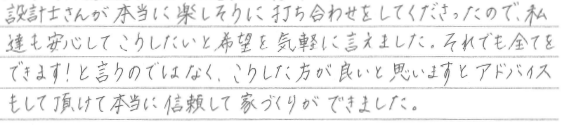 設計士さんが本当に楽しそうに打ち合わせをしてくださったので、私
達も安心してこうしたいと希望を気軽に言えました。それでも全てを
できます!と言うのではなく、こうした方が良いと思いますとアドバイス
もして頂けて本当に信頼して家づくりができました。